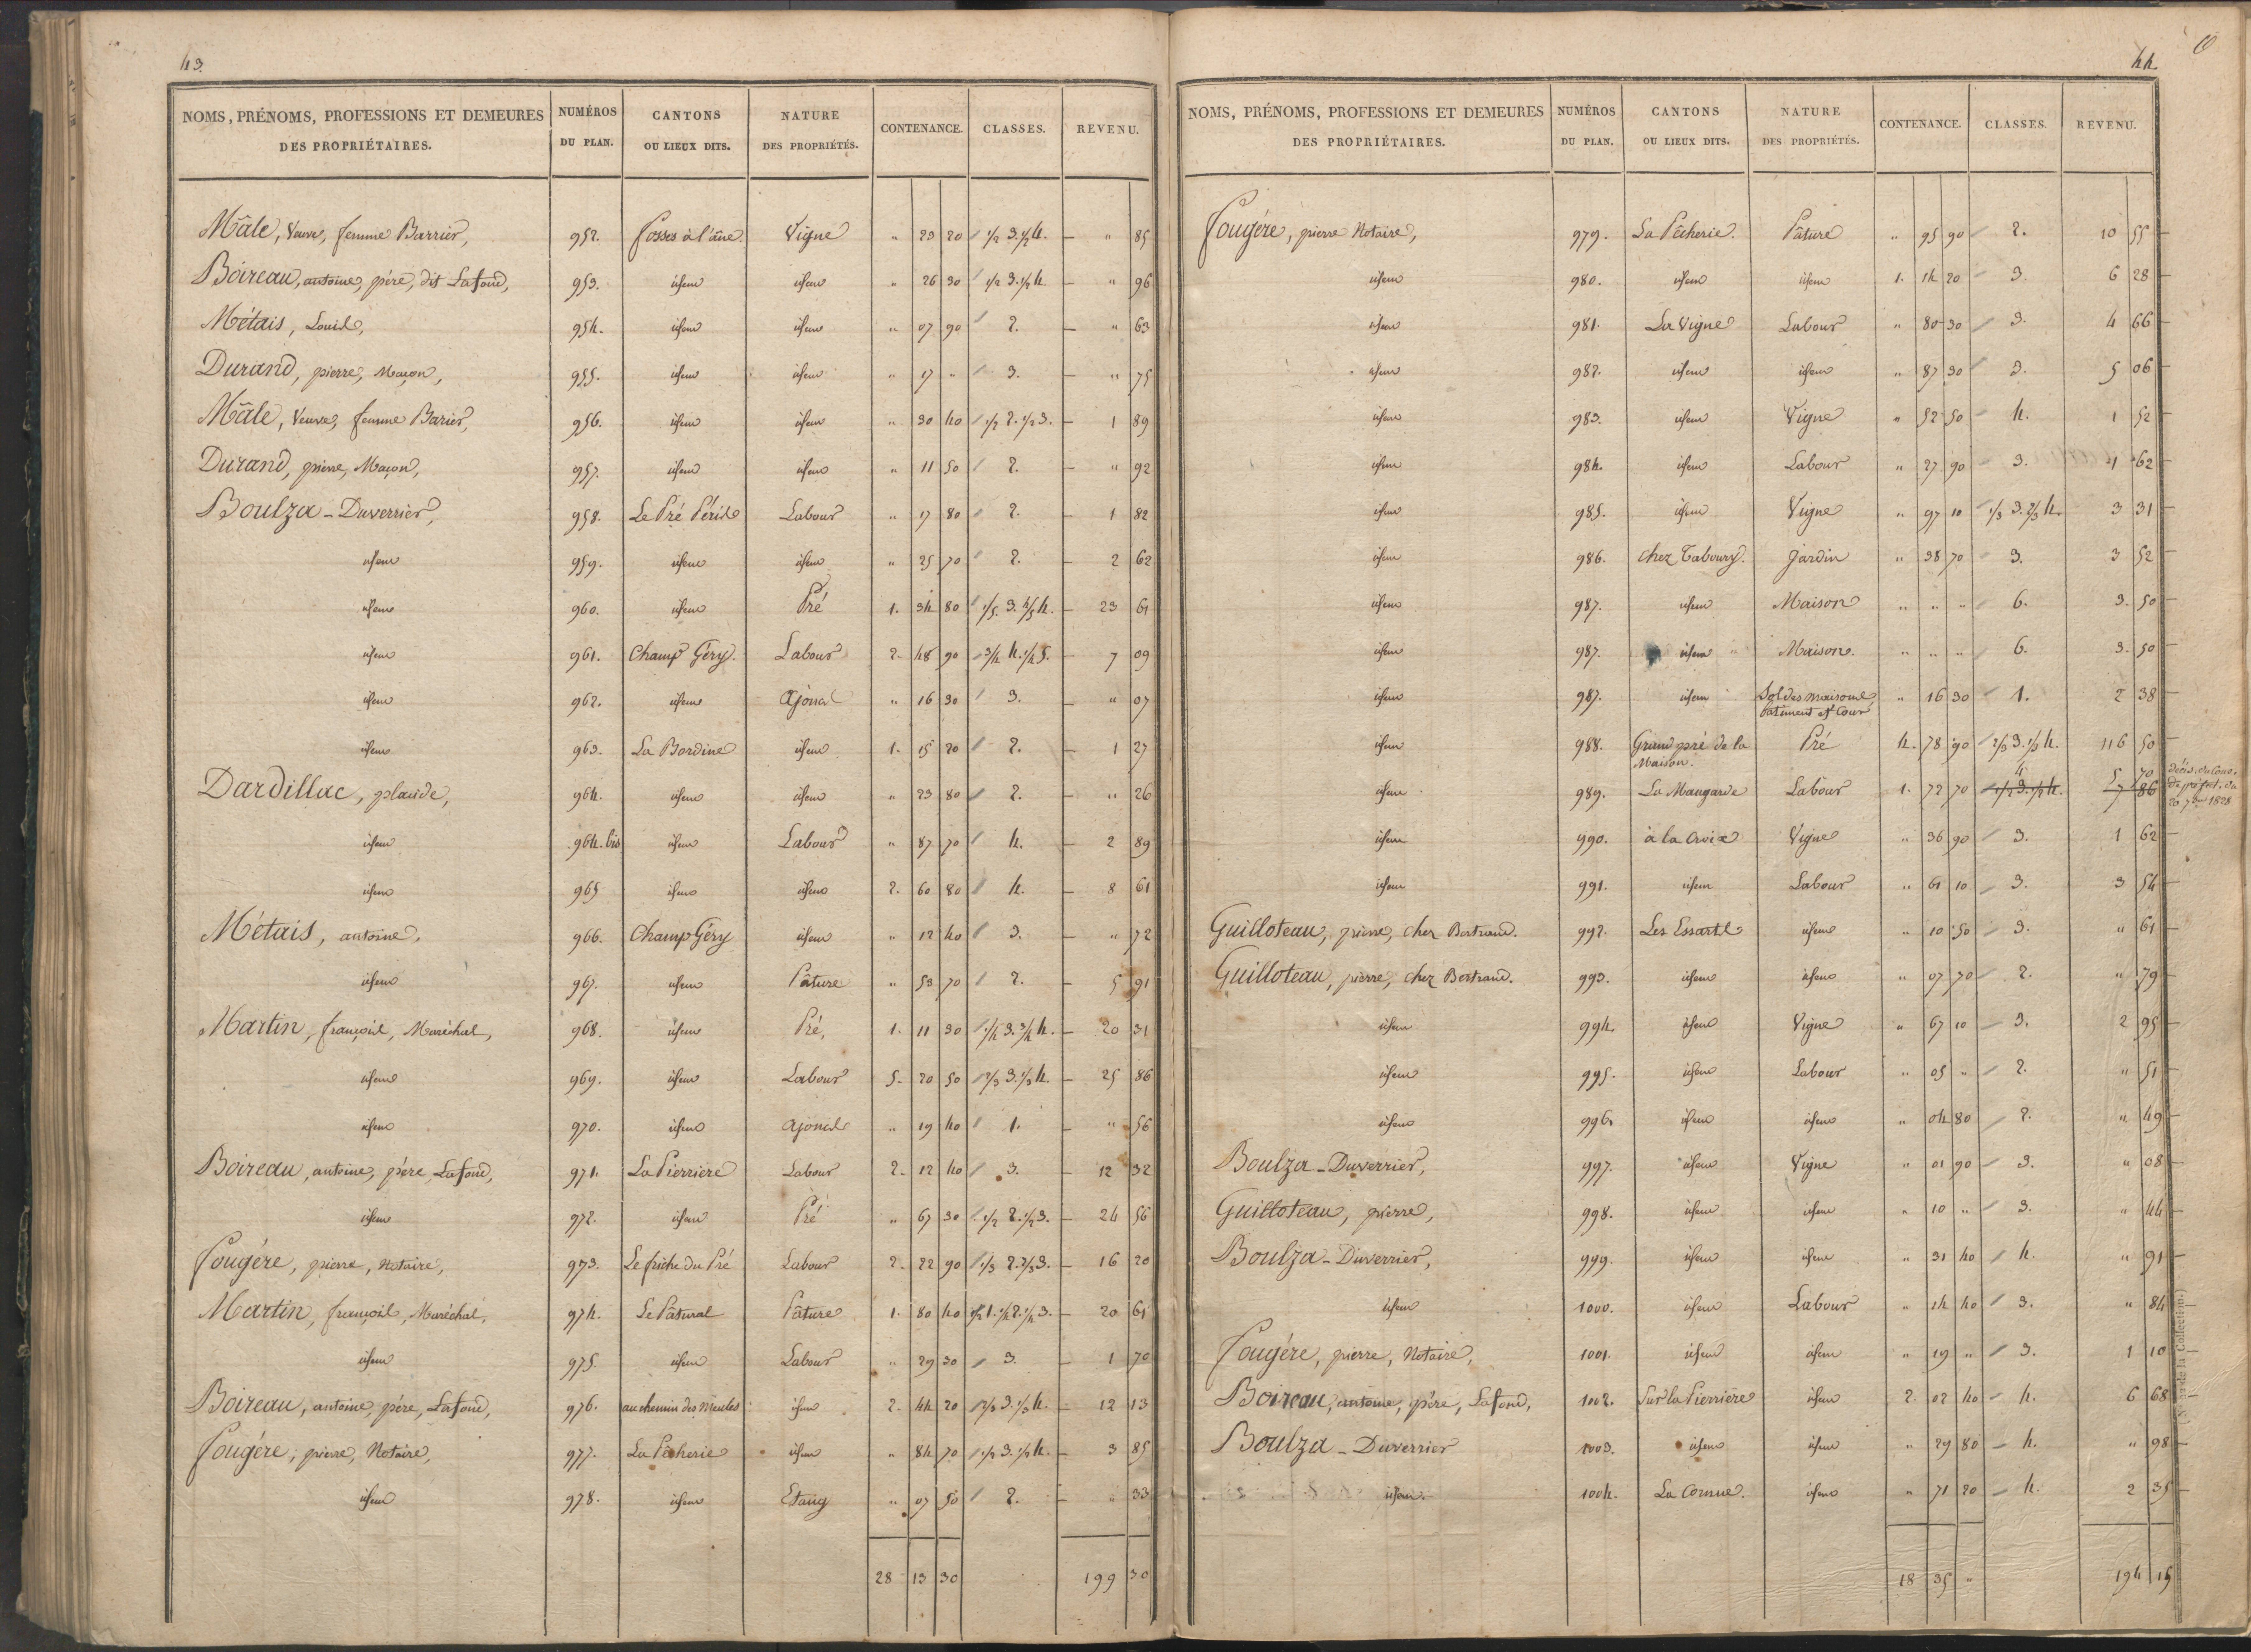 43.
NOMS, PRÉNOMS, PROFESSIONS ET DEMEURES DES PROPRIÉTAIRES. NUMÉROS DU PLAN. CANTONS OU LIEUX DITS. NATURE DES PROPRIÉTÉS. CONTENANCE. CLASSES. REVENU.
Mâle, Veuve, femme Barrier, 952. fosses à l'âne. Vigne " 23 20 1/2 3. 1/2 4. " 85
Boireau, antoine, père, dit Lafond, 953. idem idem " 26 30 1/2 3. 1/2 4. " 96
Métais, Louis, 954. idem idem " 07 90 2. " 63
Durand, pierre, Maçon, 955. idem idem " 17 " 3. " 75
Mâle, Veuve, femme Barier, 956. idem idem " 30 40 1/2 2. 1/2 3. 1 89
Durand, pierre, Maçon, 957. idem idem " 11 50 2. " 92
Boulza-Duverrier, 958. Le Pré Péris Labour " 17 80 2. 1 82
idem 959. idem idem " 25 70 2. 2 62
idem 960. idem Pré 1. 34 80 1/5. 3. 4/5 4. 23 61
idem 961. Champ Géry. Labour 2. 48 90 3/4 4. 1/4 5. 7 09
idem 962. idem ajonc " 16 30 3. " 07
idem 963. La Bordine idem 1. 15 20 2. 1 27
Dardillac, placide, 964. idem idem " 23 80 2. " 26
idem 964. bis idem Labour " 87 70 4. 2 89
idem 965 idem idem 2. 60 80 4. 8 61
Métais, antoine, 966. Champ Géry idem " 12 40 3. " 72
idem 967. idem Pâture " 53 70 2. 5 91
Martin, françois, Maréchal, 968. idem Pré, 1. 11 30 1/4 3. 3/4 4. 20 31
idem 969. idem Labour 5. 20 50 2/3 3. 1/3 4. 25 86
idem 970. idem ajoncs " 19 40 1. " 56
Boireau, antoine, père, Lafond, 971. La Pierriere Labour 2. 12 40 3. 12 32
idem 972. idem Pré " 67 30 1/2 2. 1/2 3. 24 56
Fougére, pierre, notaire, 973. Le friche du Pré Labour 2. 22 90 1/3 2. 2/3 3. 16 20
Martin, françois, Maréchal, 974. Le Pâtural Pâture 1. 80 40 1/2 1. 1/4 2. 1/4 3. 20 61
idem 975. idem Labour " 29 30 3. 1 70
Boireau, antoine, père, Lafond, 976. au chemin des Meules idem 2. 44 20 2/3 3. 1/3 4. 12 13
Fougére, pierre, Notaire, 977. La Pêcherie idem " 84 70 1/2 3. 1/2 4. 3 85
idem 978. idem Etang " 07 50 2. " 33
28 13 30 199 30
44.
NOMS, PRÉNOMS, PROFESSIONS ET DEMEURES DES PROPRIÉTAIRES. NUMÉROS DU PLAN. CANTONS OU LIEUX DITS. NATURE DES PROPRIÉTÉS. CONTENANCE. CLASSES. REVENU.
Fougére, pierre Notaire, 979. La Pêcherie. Pâture " 95 90 2. 10 55
idem 980. idem idem 1. 14 20 3. 6 28
idem 981. La Vigne Labour " 80 30 3. 4 66
idem 982. idem idem " 87 30 3. 5 06
idem 983. idem Vigne " 52 50 4. 1 52
idem 984. idem Labour " 27 90 3. 1 62
idem 985. idem Vigne " 97 10 1/3 3. 2/3 4. 3 31
idem 986. chez Taboury. Jardin " 38 70 3. 3 52
idem 987. idem Maison " " " 6. 3. 50
idem 987. idem " Maison. " " " 6. 3. 50
idem 987. idem Sol des maisons bâtiment et Cour " 16 30 1. 2 38
idem 988. Grand pré de la Maison. Pré 4. 78 90 2/3 3. 1/3 4. 116 50
idem 989. La Maugarde Labour 1. 72 70 4 1/2 3. 1/2 4. 5 70 7 86
20 7bre 1828
idem 990. à la croix Vigne " 36 90 3. 1 62
idem 991. idem Labour " 61 10 3. 3 54
Guilloteau, pierre, chez Bertrand. 992. Les Essarts idem " 10 50 3. " 61
Guilloteau, pierre, chez Bertrand. 993. idem idem " 07 70 2. " 79
idem 994. idem Vigne " 67 10 3. 2 95
idem 995. idem Labour " 05 " 2. " 51
idem 996. idem idem " 04 80 2. " 49
Boulza-Duverrier, 997. idem Vigne " 01 90 3. " 08
Guilloteau, pierre, 998. idem idem " 10 " 3. " 44
Boulza-Duverrier, 999. idem idem " 31 40 4. " 91
idem 1000. idem Labour " 14 40 3. " 84
Fougére, pierre, Notaire, 1001. idem idem " 19 " 3. 1 10
Boireau, antoine, père, Lafond, 1002. Sur la Pierriére idem 2. 02 40 4. 6 68
Boulza-Duverrier 1003. idem idem " 29 80 4. " 98
idem. 1004. La Cornue. idem " 71 20 4. 2 35
18 35 " 194 15
de la Collection.)